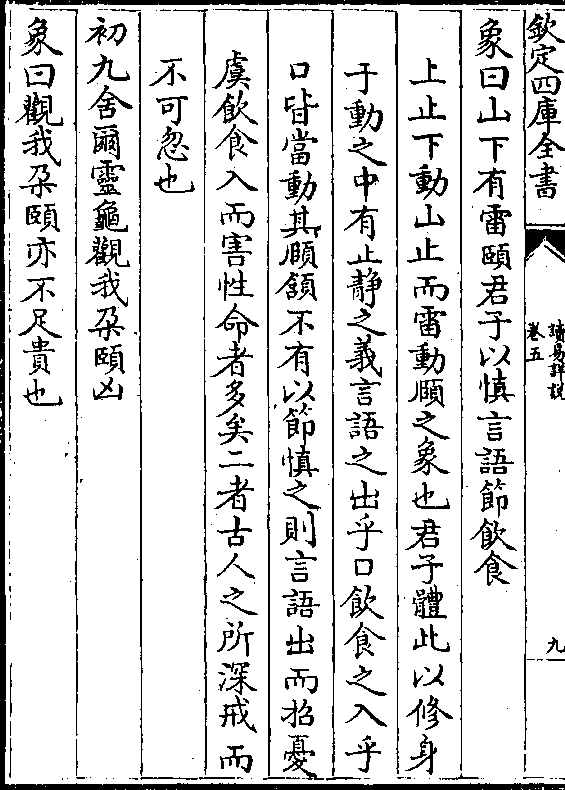 欽定四庫全書
讀易詳說
卷五
九
象曰山下有雷頤君子以慎言語節飲食
上止下動山止而雷動頤之象也君子體此以修身
于動之中有止静之義言語之出乎口飲食之入乎
口皆當動其頤頷不有以節慎之則言語出而招憂
虞飲食入而害性命者多矣二者古人之所深戒而
不可忽也
初九舍爾靈龜觀我朶頤凶
象曰觀我朶頤亦不足貴也